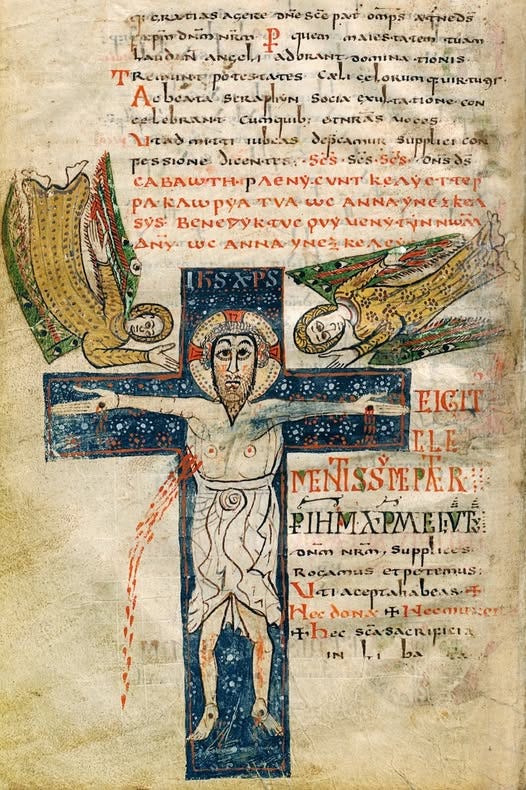 q; gratias agere dn̄e sc̄e pat omps ætne ds̄
p xpm dnm nrm P quem maiestatem tuam
laudan angeli adorant dominationis
Tremunt potestates cæli celorum q; uirtutes
Ac beata seraphyn socia exultatione con
celebrant cumquib; et nras uoces
Ut admitti iubeas deprecamur supplici con
fessione dicentes · Scs · scs · scs · dns ds
CABAWTH PLENY CUNT KELY ET TER
PA KLWPYA TUA WC ANNA YN EXKEL
SYS BENEDYKTUC QUY UENYT YN NWM
DNY WC ANNA YN EXKELCYS
IHS XPS
EIGIT
CLE
MENTISSYME PATER
P IHM XPM
dnm nrm, supplices
Rogamus et petemus
Uti acepta habeas ✠
Hec dona ✠ Hec munera
✠ Hec sca sacrificia
in li ba